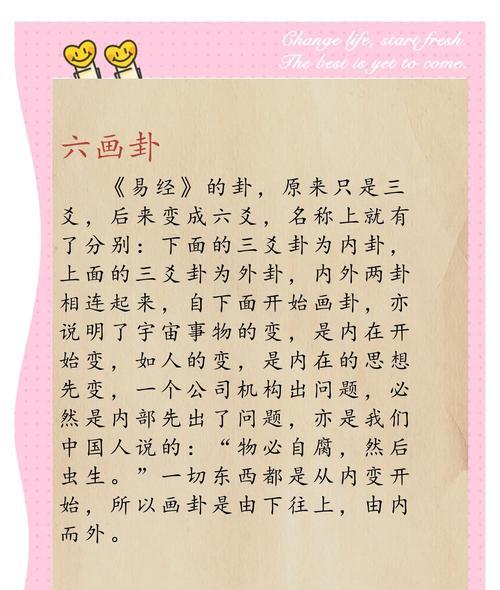 Change life, start fresh.
The best is yet to come.
六画卦
《易经》的卦，原来只是三
爻，后来变成六爻，名称上就有
了分别：下面的三爻卦为内卦，
上面的三爻卦为外卦，内外两卦
相连起来，自下面开始画卦，亦
说明了宇宙事物的变，是内在开
始变，如人的变，是内在的思想
先变，一个公司机构出问题，必
然是内部先出了问题，亦是我们
中国人说的：“物必自腐，然后
虫生。”一切东西都是从内变开
始，所以画卦是由下往上，由内
而外。